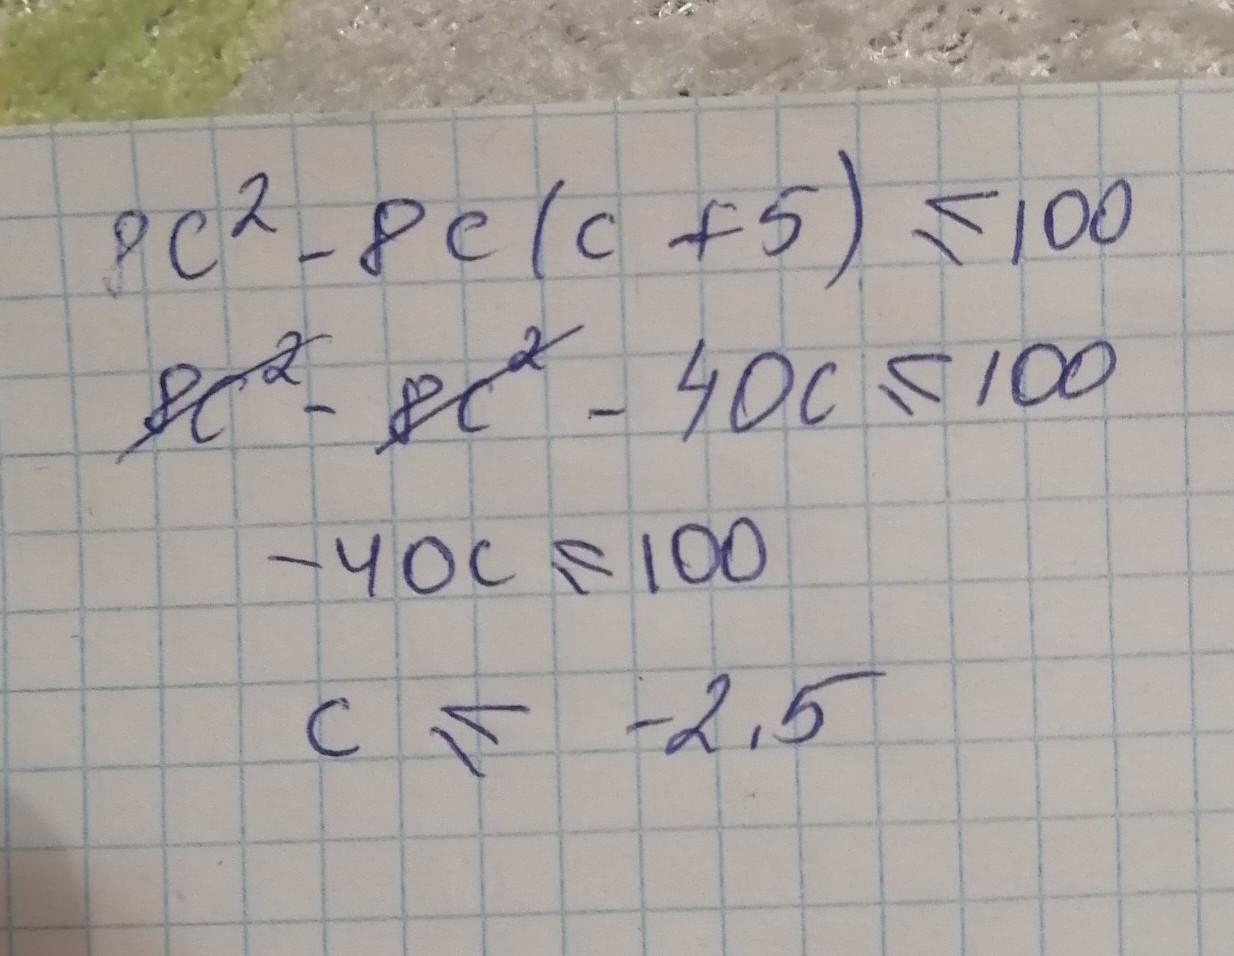 8c² - 8c(c + 5) ⩽ 100
8c² - 8c² - 40c ⩽ 100
-40c ⩽ 100
c ⩽ -2,5